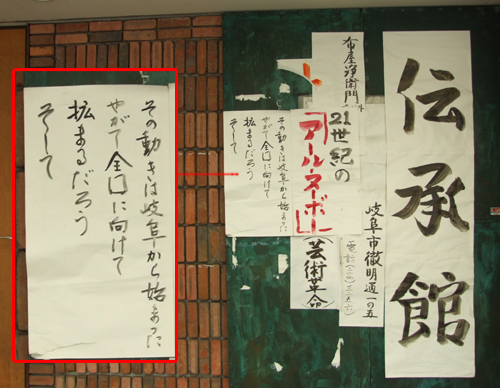 伝承館
岐阜市徹明通一の五
電話
21世紀の
「アール・ヌーボー」
(芸術革命)
その動きは岐阜から始まった
やがて全囗に向けて
拡まるだろう
そして
その動きは岐阜から始まった
やがて全囗に向けて
拡まるだろう
そして